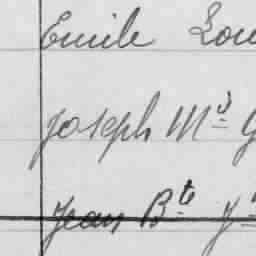 Emile Lou
Joseph Ms G
Jean Bte Jn